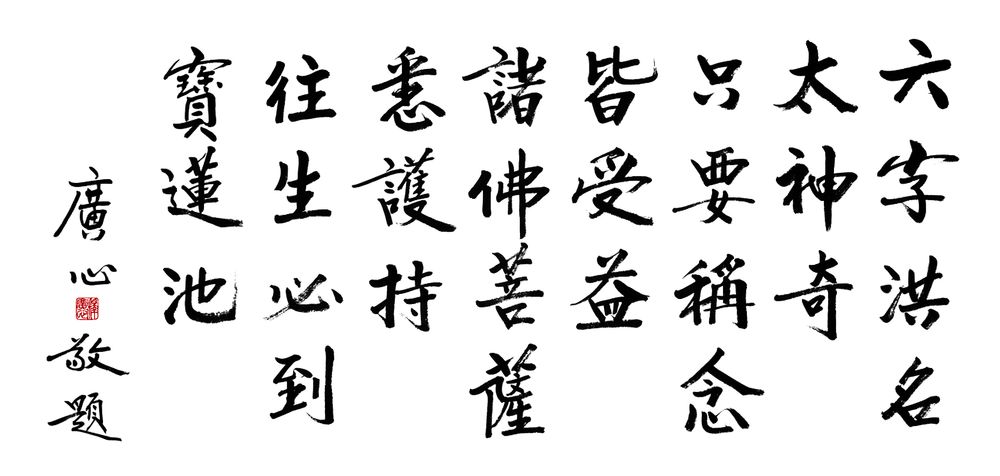 六字洪名
太神奇
只要稱念
皆受益
諸佛菩薩
悉護持
往生必到
寶蓮池
廣心敬題